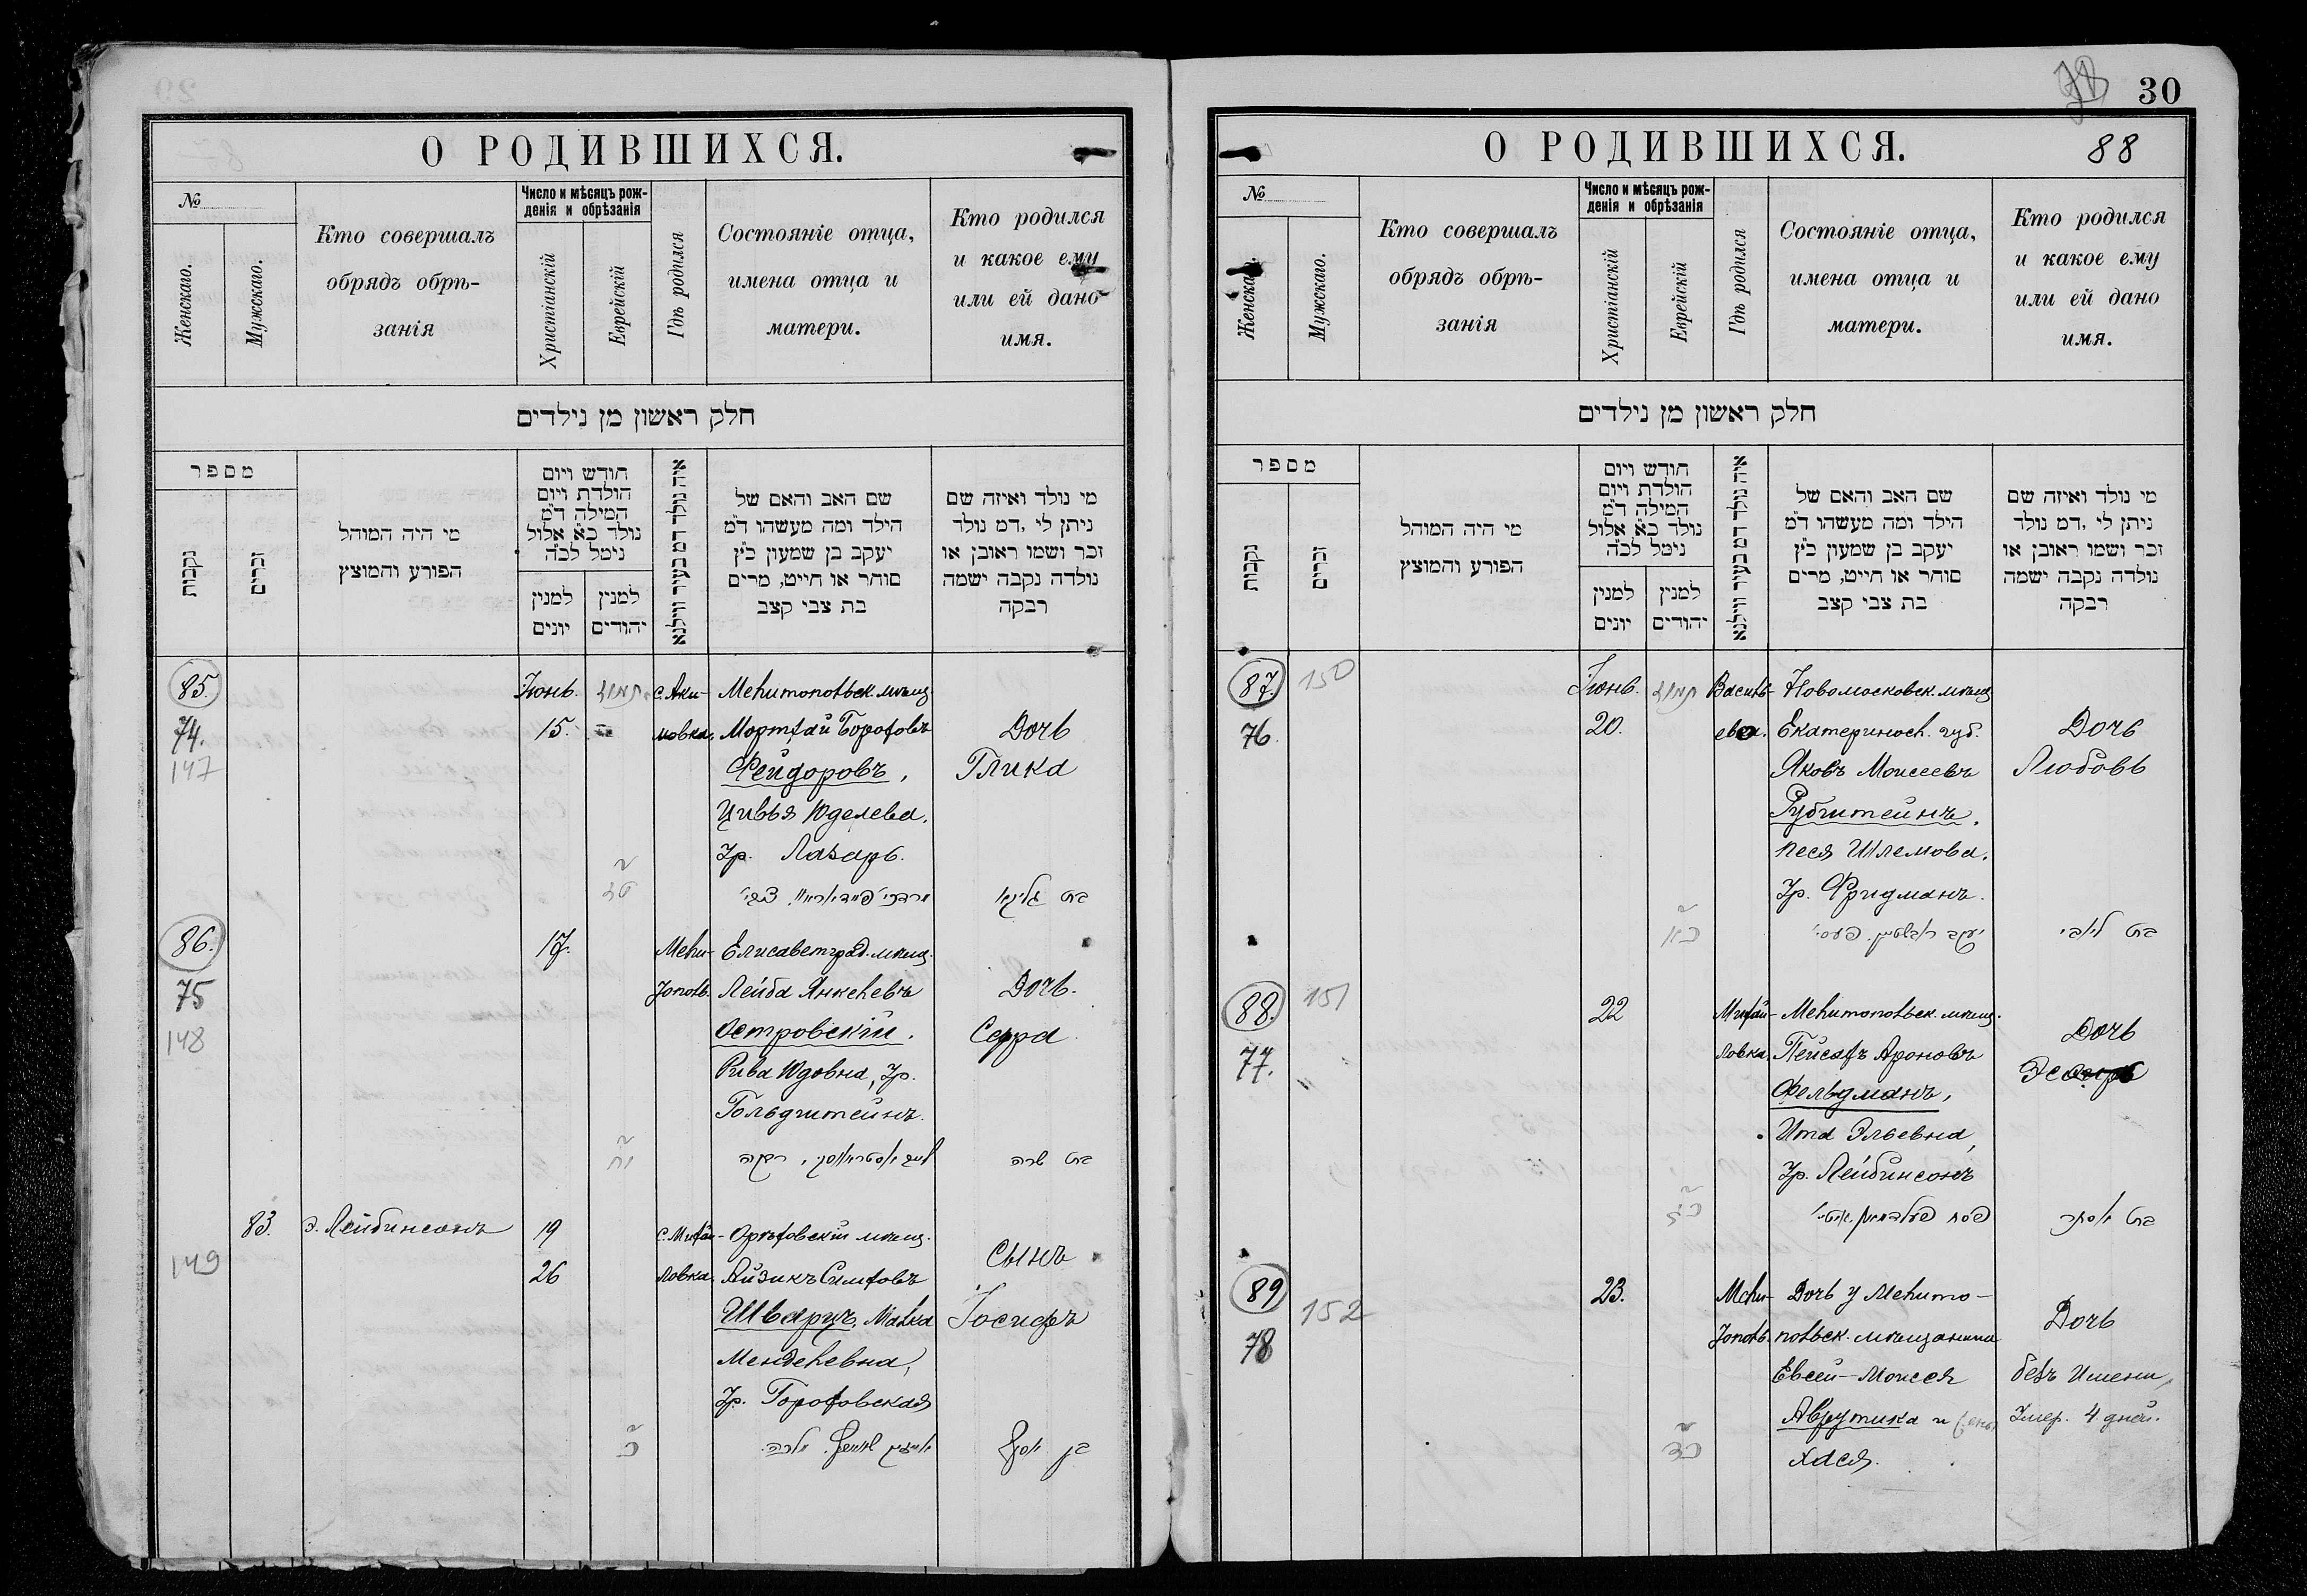 О РОДИВШИХСЯ.
№
Женскаго.
Мужскаго.
Кто совершалъ
обрядъ обрѣ-
занія
Число и мѣсяцъ рож-
денія и обрѣзанія
Христіанскій
Еврейскій
Гдѣ родился
Состояніе отца,
имена отца и
матери.
Кто родился
и какое ему
или ей дано
имя.
חלק ראשון מן נילדים
מספר
נקבות
זכרים
מי היה המוהל
הפורע והמוצץ
חודש ויום
הולדת ויום
המילה ד"מ
נולד כ"א אלול
נימל לכ"ה
למנין
יונים
למנין
יהודים
איה נולד דמ בעיר ווילנא
שם האב והאם של
הילד ומה מעשהו ד"מ
יעקב בן שמעון כ"ץ
סוחר או חייט, מרים
בת צבי קצב
מי נולד ואיזה שם
ניתן לי ,דמ נולד
זכר ושמו ראובן או
נולדה נקבה ישמה
רבקה
85.
74.
147
Іюнь.
15.
תמוז
с. Аки-
мовка.
Мелитопольск. мѣщ.
Мортхай Бороховъ
Фейдоровъ,
Цивья Юделева.
Ур. Лазарь.
Дочь
Глика
86.
75
148
17.
Мели-
тополь.
Елисаветград. мѣщ.
Лейба Янкелевъ
Островскій.
Рива Юдовна, Ур.
Гольдштейнъ.
Дочь.
Сарра
יח
בת שרה
83.
149
Э. Лейбинсонъ
19
26
с. Михай-
ловка.
Орѣховскій мѣщ.
Айзикъ Симховъ
Шварцъ, Малка
Менделевна,
Ур. Гороховская
Сынъ
Іосифъ
כ
בן יוסף
30
88
О РОДИВШИХСЯ.
№
Женскаго.
Мужскаго.
Кто совершалъ
обрядъ обрѣ-
занія
Число и мѣсяцъ рож-
денія и обрѣзанія
Христіанскій
Еврейскій
Гдѣ родился
Состояніе отца,
имена отца и
матери.
Кто родился
и какое ему
или ей дано
имя.
חלק ראשון מן נילדים
מספר
נקבות
זכרים
מי היה המוהל
הפורע והמוצץ
חודש ויום
הולדת ויום
המילה ד"מ
נולד כ"א אלול
נימל לכ"ה
למנין
יונים
למנין
יהודים
איה נולד דמ בעיר ווילנא
שם האב והאם של
הילד ומה מעשהו ד"מ
יעקב בן שמעון כ"ץ
סוחר או חייט, מרים
בת צבי קצב
מי נולד ואיזה שם
ניתן לי ,דמ נולד
זכר ושמו ראובן או
נולדה נקבה ישמה
רבקה
87.
150
76
Іюнь.
20.
תמוז
Василь-
евка.
Новомосковск. мѣщ.
Екатериносл. губ.
Яковъ Моисеевъ
Рубштейнъ.
Песя Шлемова.
Ур. Фридманъ.
Дочь
Любовь
88.
151
77.
22
Михай-
ловка.
Мелитопольск. мѣщ.
Пейсахъ Ароновъ
Фельдманъ,
Ита Эльевна,
Ур. Лейбинсонъ
Дочь
89
152
78
23.
Мели-
тополь.
Дочь у Мелито-
польск. мѣщанина
Евсей-Моисея
Аврутина и жены
Хася.
Дочь
безъ имени,
Умер. 4 дней.
כד